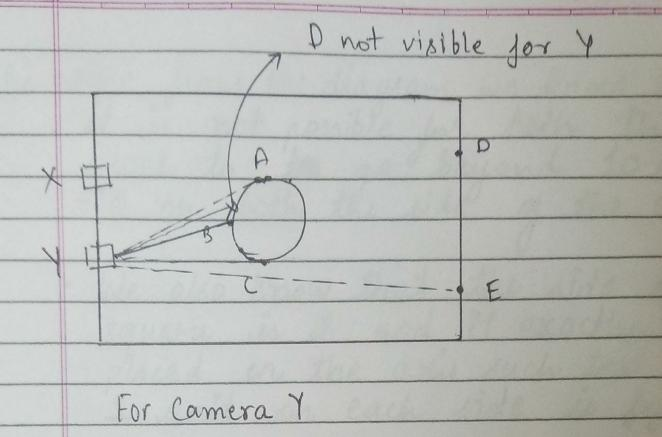 D not visible for Y
A
D
X
B
Y
C
E
For Camera Y